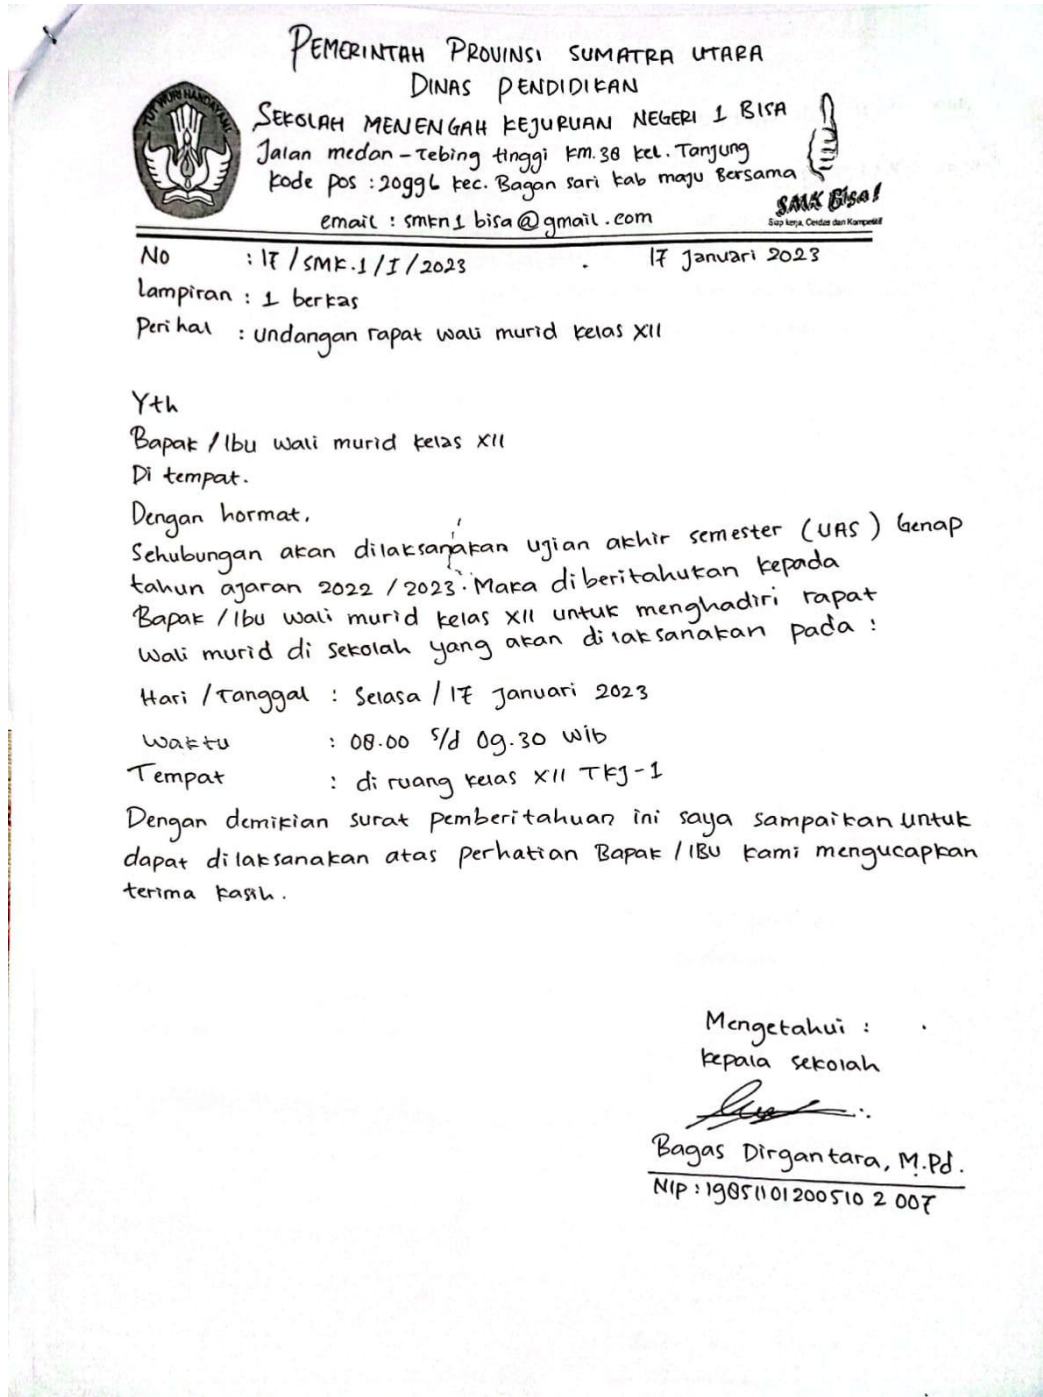 PEMERINTAH PROVINSI SUMATRA UTARA
DINAS PENDIDIKAN
SEKOLAH MENENGAH KEJURUAN NEGERI 1 BISA
Jalan medan - Tebing tinggi km.38 kel. Tanjung
kode pos : 20996 kec. Bagan sari kab maju Bersama
email : smkn1 bisa@gmail.com
TUT WURI HANDAYANI
SMK Bisa!
Siap kerja, Cerdas dan Kompetitif
No : 17 / SMK.1 / I / 2023 17 Januari 2023
Lampiran : 1 berkas
Perihal : undangan rapat wali murid kelas XII
Yth
Bapak / Ibu wali murid kelas XII
Di tempat.
Dengan hormat,
Sehubungan akan dilaksanakan ujian akhir semester (UAS) Genap
tahun ajaran 2022 / 2023. Maka diberitahukan kepada
Bapak / Ibu wali murid kelas XII untuk menghadiri rapat
Wali murid di sekolah yang akan dilaksanakan pada :
Hari / Tanggal : Selasa / 17 Januari 2023
Waktu : 08.00 s/d 09.30 wib
Tempat : di ruang kelas XII TKJ-1
Dengan demikian surat pemberitahuan ini saya sampaikan untuk
dapat dilaksanakan atas perhatian Bapak / IBU kami mengucapkan
terima kasih.
Mengetahui :
kepala sekolah
Bagas Dirgantara, M.Pd.
NIP : 19851101200510 2 007